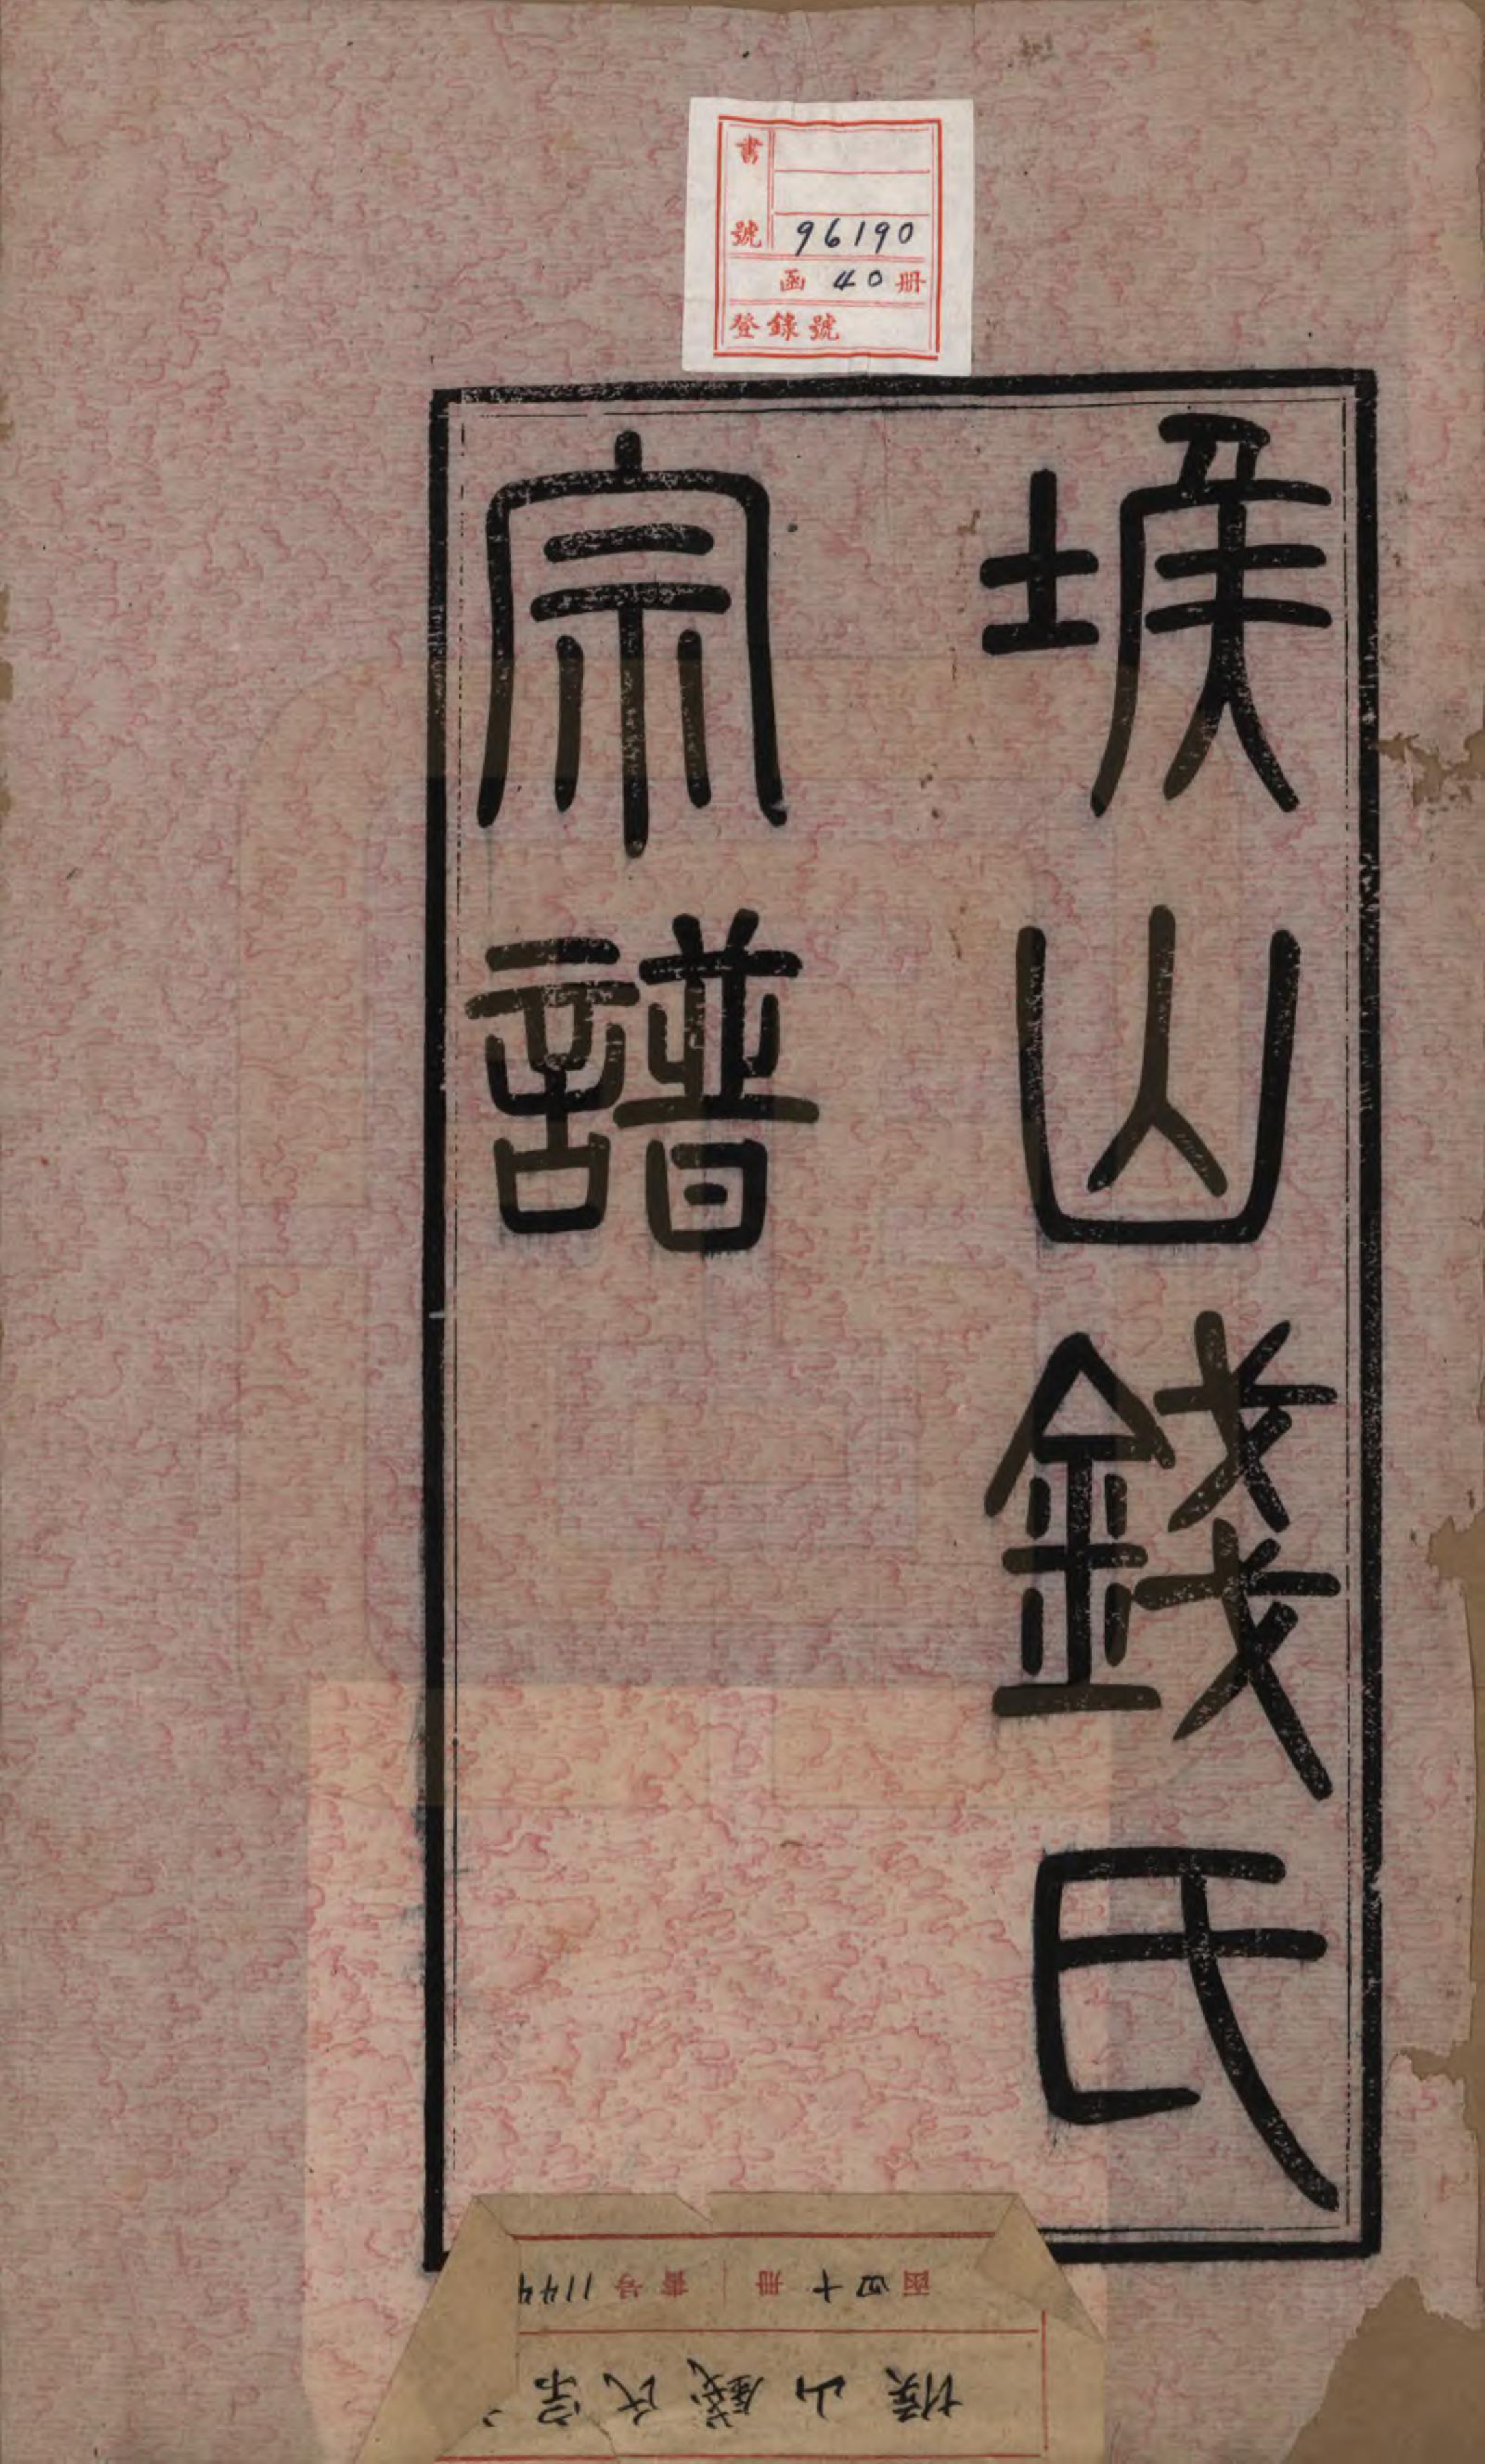 書號 96190
函 40 册
登錄號
堠山錢氏
宗譜
函 四十 册 書号 1144
堠山錢氏宗